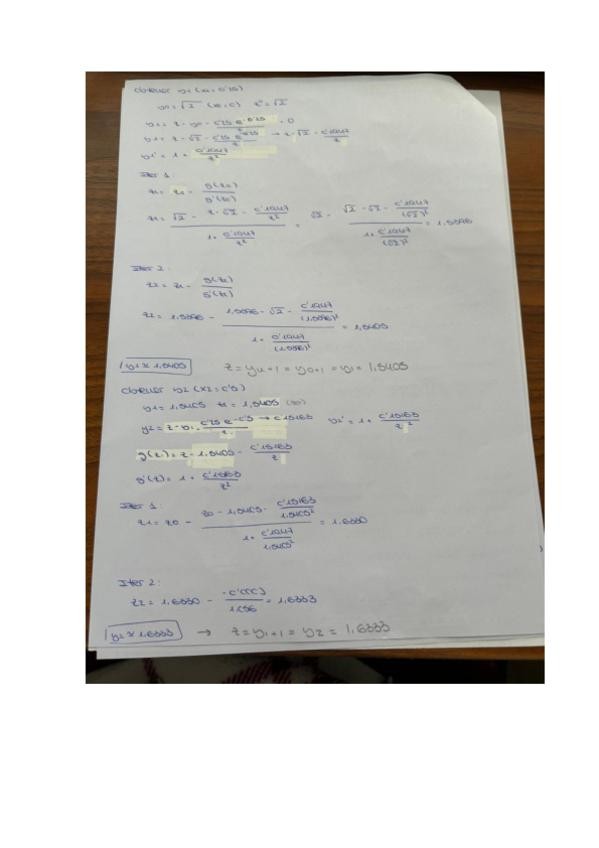 Obtener y1 (x1 = 0'25)
y0 = √2 (x0 = 0) z0 = √2
y1 = z - y0 - 0'25 e^-0'25 / z = 0
y1 = z - √2 - 0'25 e^-0'25 / z → z - √2 - 0'1947 / z
y1' = 1 + 0'1947 / z²
Iter 1:
z1 = z0 - g(z0) / g'(z0)
z1 = √2 - z - √2 - 0'1947 / z² / 1 + 0'1947 / z² = √2 - √2 - √2 - 0'1947 / (√2)² / 1 + 0'1947 / (√2)² = 1,5396
Iter 2:
z2 = z1 - g(z1) / g'(z1)
z2 = 1,5396 - 1,5396 - √2 - 0'1947 / (1,5396)² / 1 + 0'1947 / (1,5396)² = 1,5405
y1 ≈ 1,5405 z = yn+1 = y0+1 = y1 = 1,5405
Obtener y2 (x2 = 0'5)
y1 = 1,5405 z1 = 1,5405 (z0)
y2 = z - y1 - 0'25 e^-0'5 / z → 0'15163 y2' = 1 + 0'15163 / z²
g(z) = z - 1,5405 - 0'15163 / z
g'(z) = 1 + 0'15163 / z²
Iter 1:
z1 = z0 - z0 - 1,5405 - 0'15163 / 1,5405² / 1 + 0'1947 / 1,5405² = 1,6330
Iter 2:
z2 = 1,6330 - -0'0003 / 1,056 = 1,6333
y2 ≈ 1,6333 → z = y1+1 = y2 = 1,6333